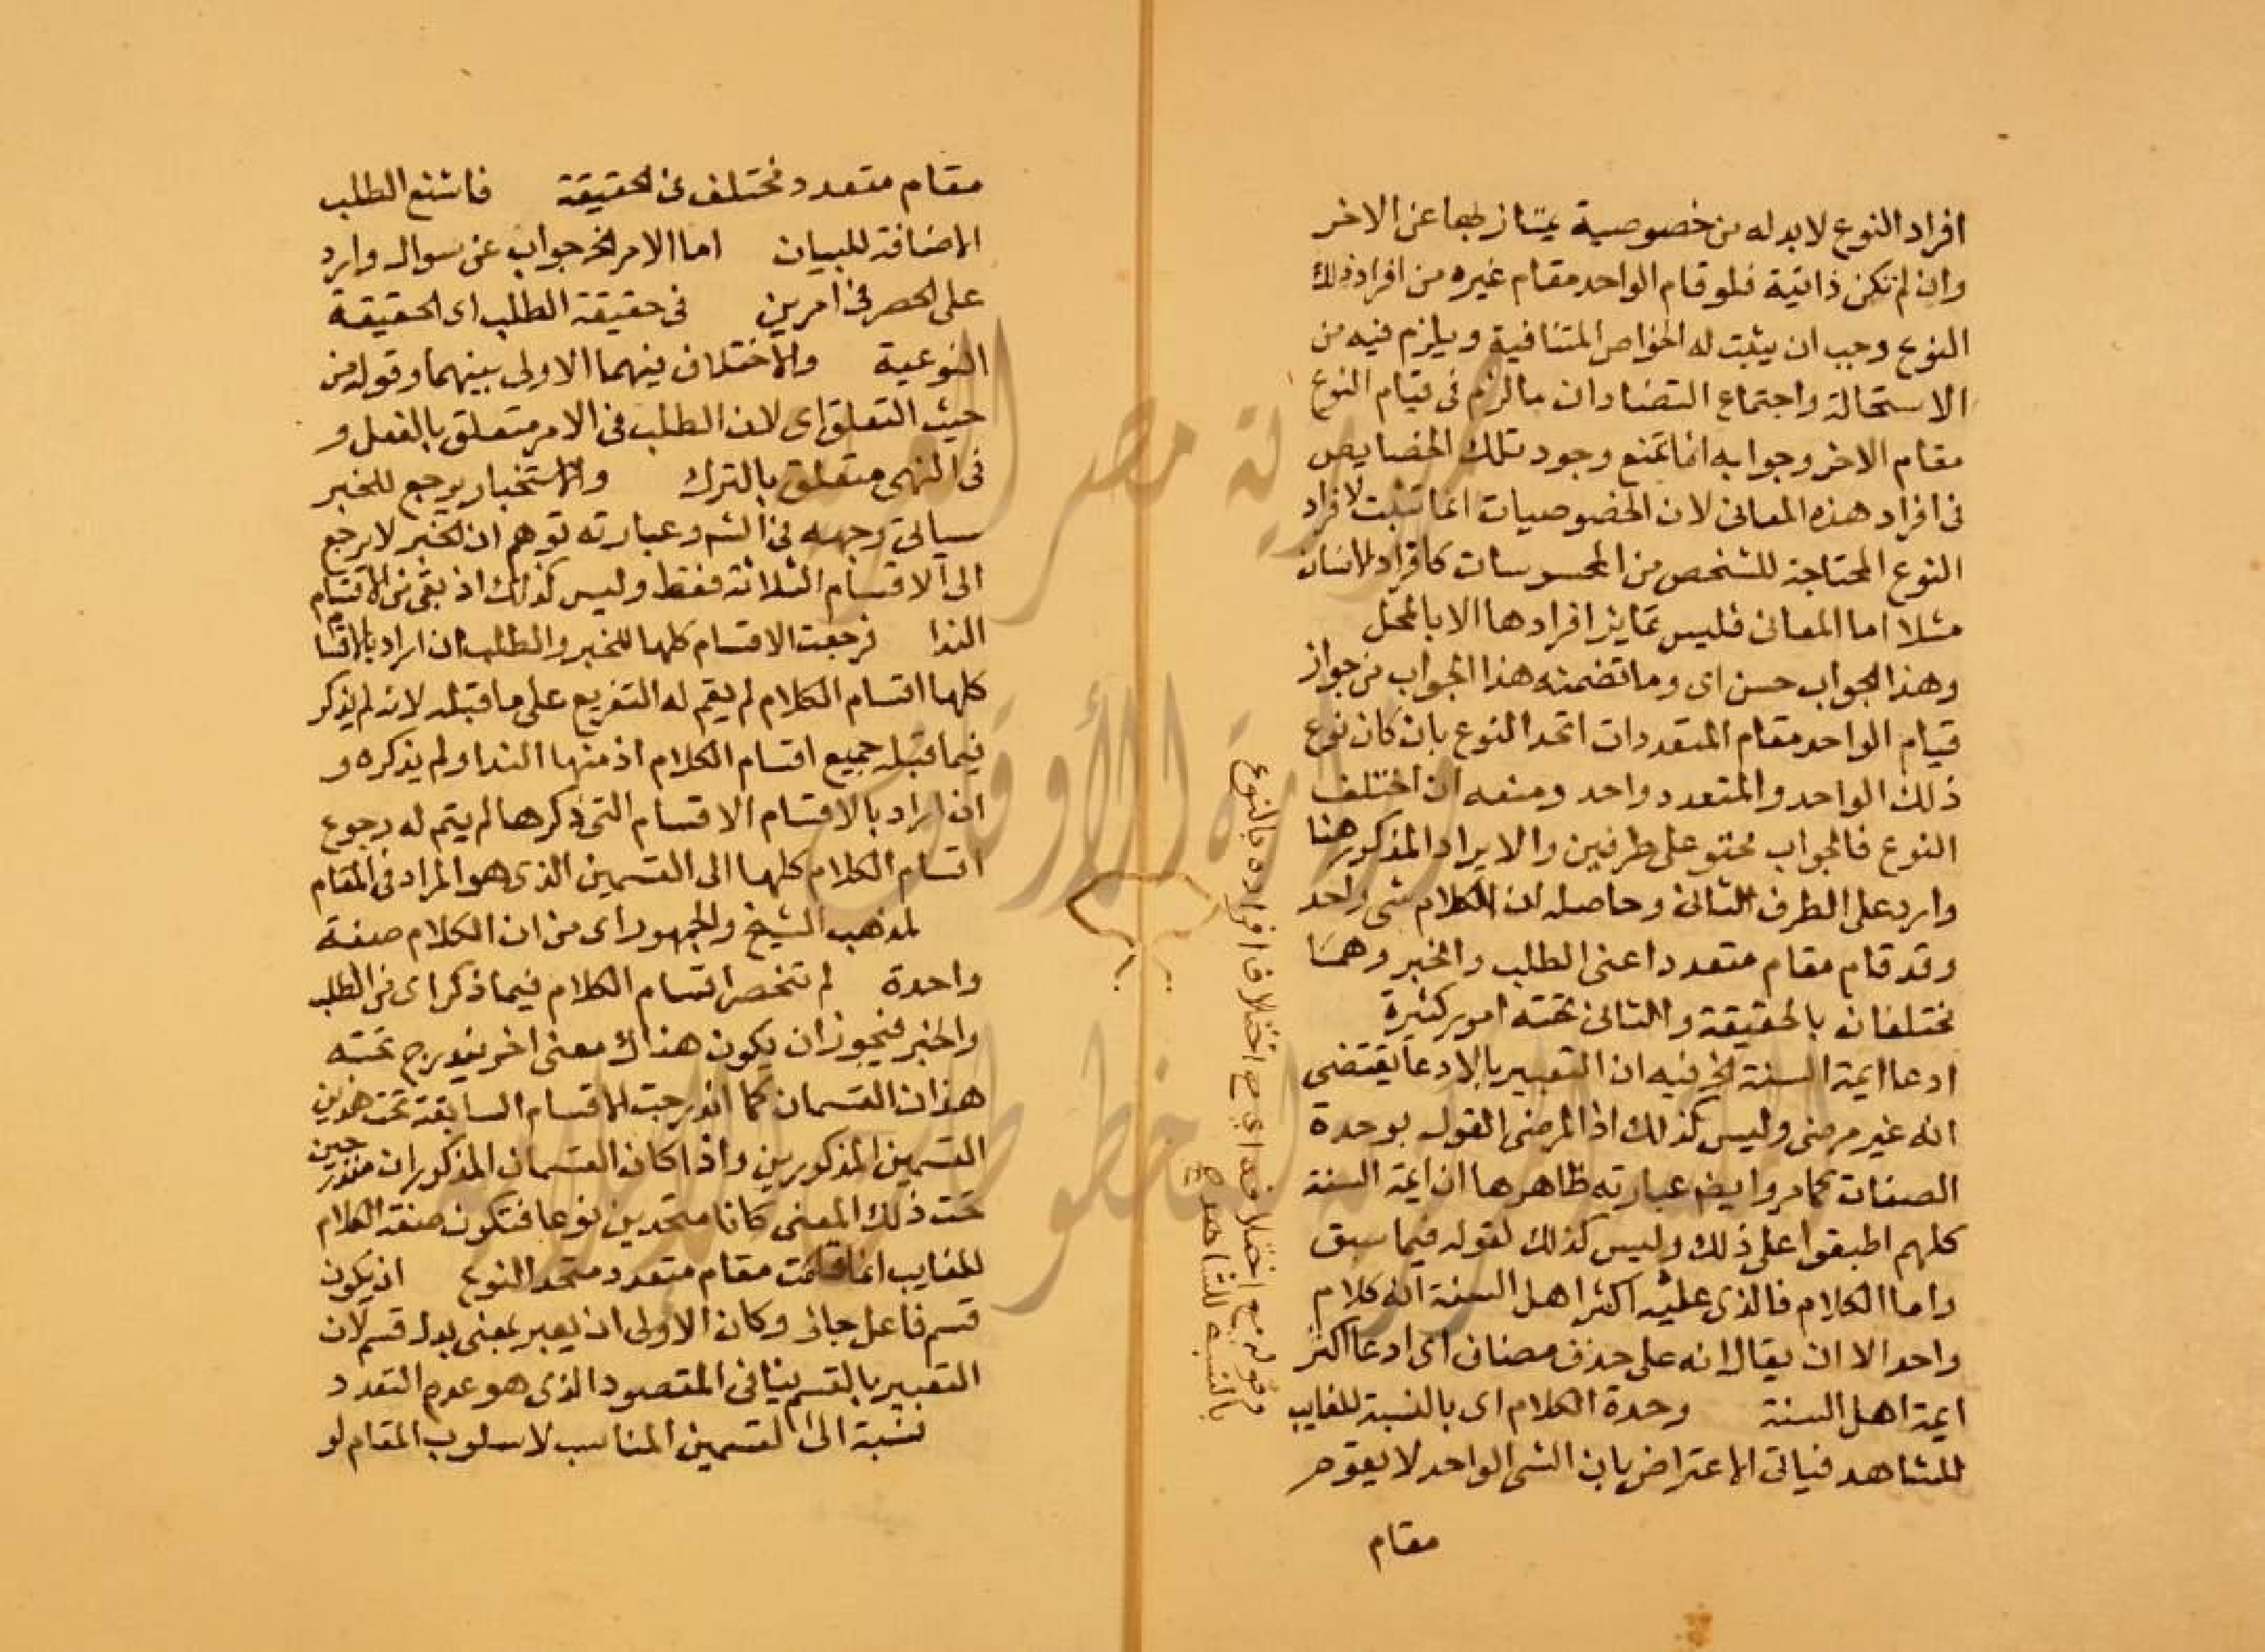 افراد النوع لابد له من خصوصية يمتاز بها عن الاخر
وان لم تكن ذاتية فلو قام الواحد مقام غيره من افراد ذلك
النوع وجب ان يثبت له الخواص المتنافية ويلزم فيه من
الاستحالة واجتماع التضاد ان ما لزم فى قيام النوع
مقام الاخر وجوابه انما تمنع وجود تلك الخصايص
فى افراد هذه المعانى لان الخصوصيات انما تثبت لافراد
النوع المحتاجة للشخص من المحسوسات كافراد الانسان
مثلا اما المعانى فليس تمايز افرادها الا بالمحل
وهذا الجواب حسن اى وما تضمنه هذا الجواب من جواز
قيام الواحد مقام المتعددات اتحد النوع بان كان نوع
ذلك الواحد والمتعدد واحد ومنعه ان اختلف
النوع فالجواب محتو على طرفين والايراد المذكور هنا
وارد على الطرف الثانى وحاصله ان الكلام شى واحد
وقد قام مقام متعدد اعنى الطلب والخبر وهما
مختلفان بالحقيقة والثانى تحته امور كثيرة
ادعا ايمة السنة الخ فيه ان التعبير بالادعا يقتضى
انه غير مرضى وليس كذلك اذ المرضى القول بوحدة
الصفات كما مر وايضا عبارته ظاهرها ان ايمة السنة
كلهم اطبقوا على ذلك وليس كذلك لقوله فيما سبق
واما الكلام فالذى عليه اكثر اهل السنة انه كلام
واحد الا ان يقال انه على حذف مضاف اى ادعا اكثر
ايمة اهل السنة وحدة الكلام اى بالنسبة للغايب
للشاهد فياتى الاعتراض بان الشى الواحد لا يقوم
مقام
وقوله مع اختلافه اى مع اختلاف افراده بالنوع
بالنسبة للشاهد
مقام متعدد مختلف فى الحقيقة فامتنع الطلب
الاضافة للبيان اما الامر الخ جواب عن سوال وارد
على الحصر فى امرين فى حقيقة الطلب اى الحقيقة
النوعية والاختلاف فيهما الاولى بينهما وقوله من
حيث التعلق اى لان الطلب فى الامر متعلق بالفعل و
فى النهى متعلق بالترك والاستخبار يرجع للخبر
سياتى وجهه فى الشـ وعبارته توهم ان الخبر لا يرجع
الى الاقسام الثلاثة فقط وليس كذلك اذ بقى من الاقسام
الندا فرجعت الاقسام كلها للخبر والطلب ان اراد بالاقسا
كلها اقسام الكلام لم يقم له التفريع على ما قبله لانه لم يذكر
فيما قبله جميع اقسام الكلام اذ منها الندا ولم يذكره و
ان اراد بالاقسام الاقسام التى ذكرها لم يتم له رجوع
اقسام الكلام كلها الى القسمين الذى هو المراد فى المقام
لمذهب الشيخ والجمهور اى من ان الكلام صفة
واحدة لم تنحصر اقسام الكلام فيما ذكر اى من الطلب
والخبر فيجوز ان يكون هناك معنى اخر يندرج تحته
هذان القسمان كما اندرجت الاقسام السابقة تحت هذين
القسمين المذكورين واذا كان القسمان المذكوران مندرجين
تحت ذلك المعنى كانا متحدين نوعا فتكون صفة الكلام
للغايب انما قامت مقام متعدد متحد النوع ان يكون
قسم فاعل جاز وكان الاولى ان يعبر بمعنى بدل قسم لان
التعبير بالقسم ينافى المقصود الذى هو عدم التعدد
نسبة الى القسمين المناسب لاسلوب المقام لو